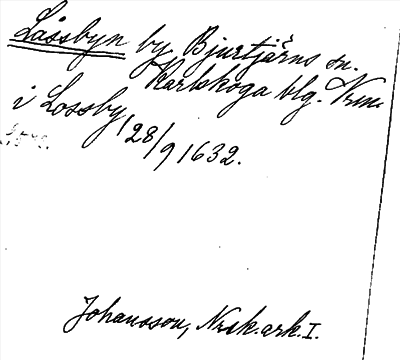 Låssbyn by Bjurtjärns sn.
Karlskoga blg. Vrml.
i Lossby 28/9 1632.
Johansson, Nrsk. ark. I.